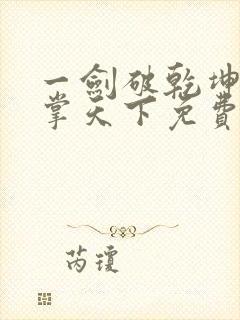 一劍破乾坤
掌天下免費
芮瓊